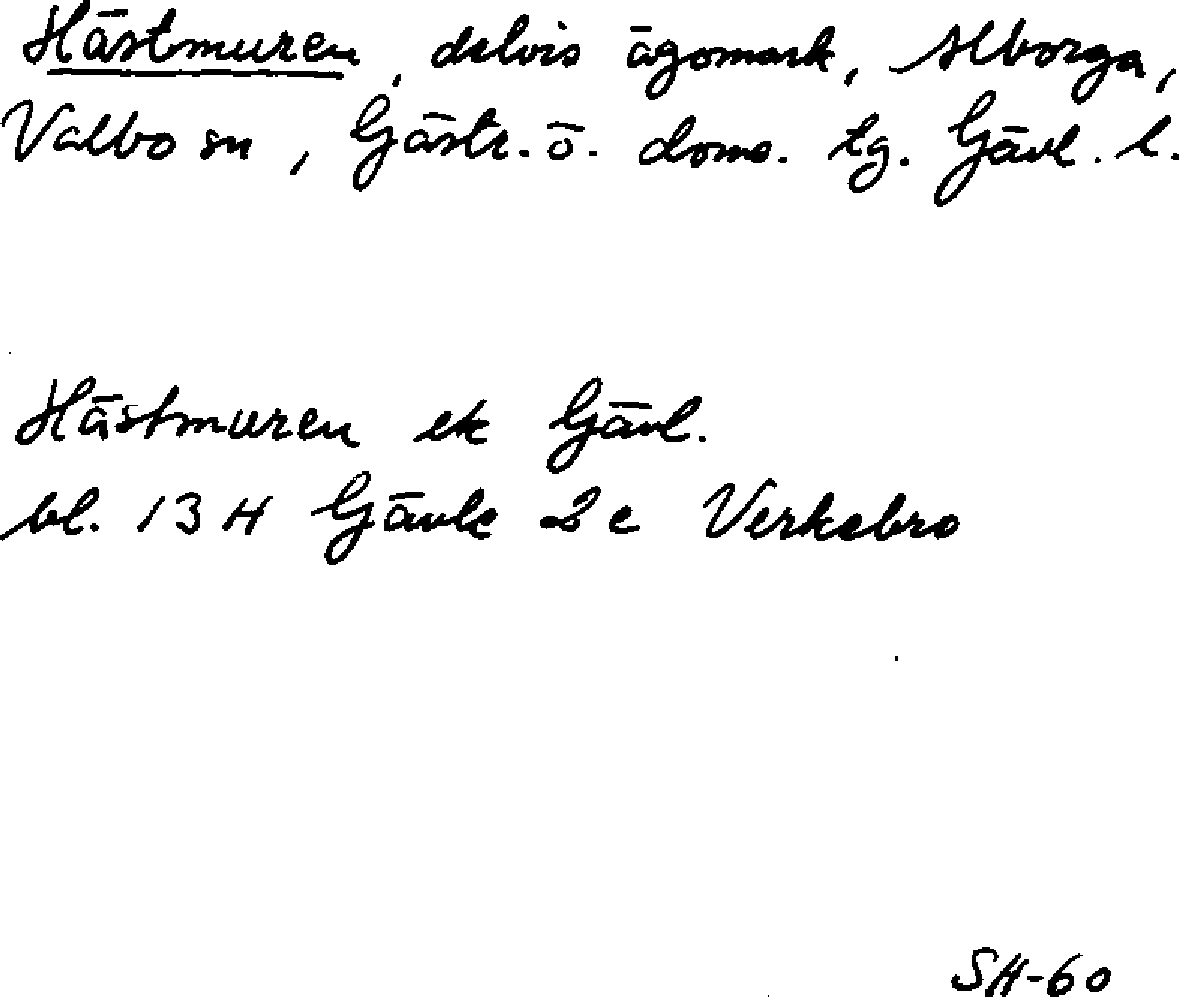 Hästmuren, delvis ägomark, Alborga,
Valbo sn, Gästr. ö. doms. tg. Gävl. l.
Hästmuren ek Gävl.
bl. 13 H Gävle 2 c Verkebro
SH-60